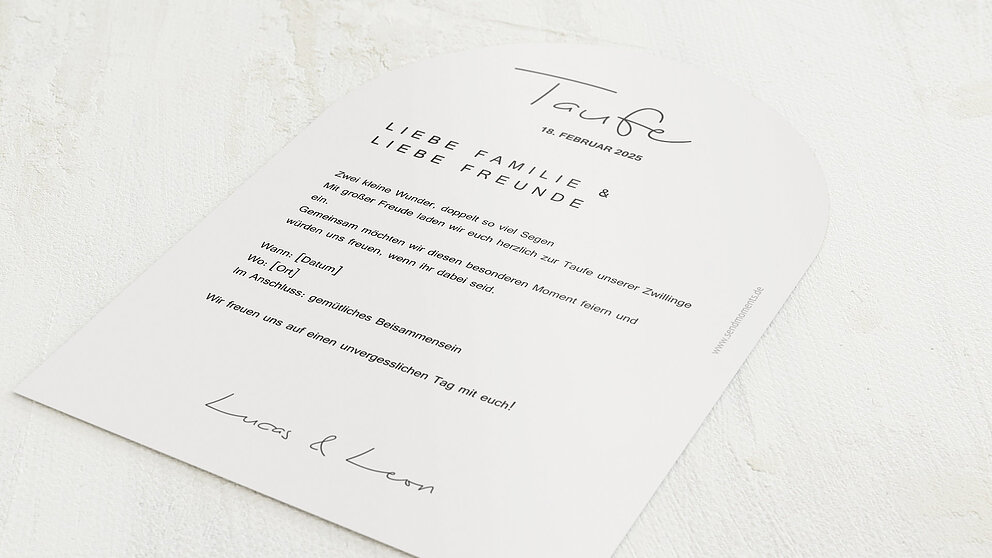 Taufe
18. FEBRUAR 2025
LIEBE FAMILIE &
LIEBE FREUNDE
Zwei kleine Wunder, doppelt so viel Segen
Mit großer Freude laden wir euch herzlich zur Taufe unserer Zwillinge
ein.
Gemeinsam möchten wir diesen besonderen Moment feiern und
würden uns freuen, wenn ihr dabei seid.
Wann: [Datum]
Wo: [Ort]
Im Anschluss: gemütliches Beisammensein
Wir freuen uns auf einen unvergesslichen Tag mit euch!
Lucas & Leon
www.sendmoments.de